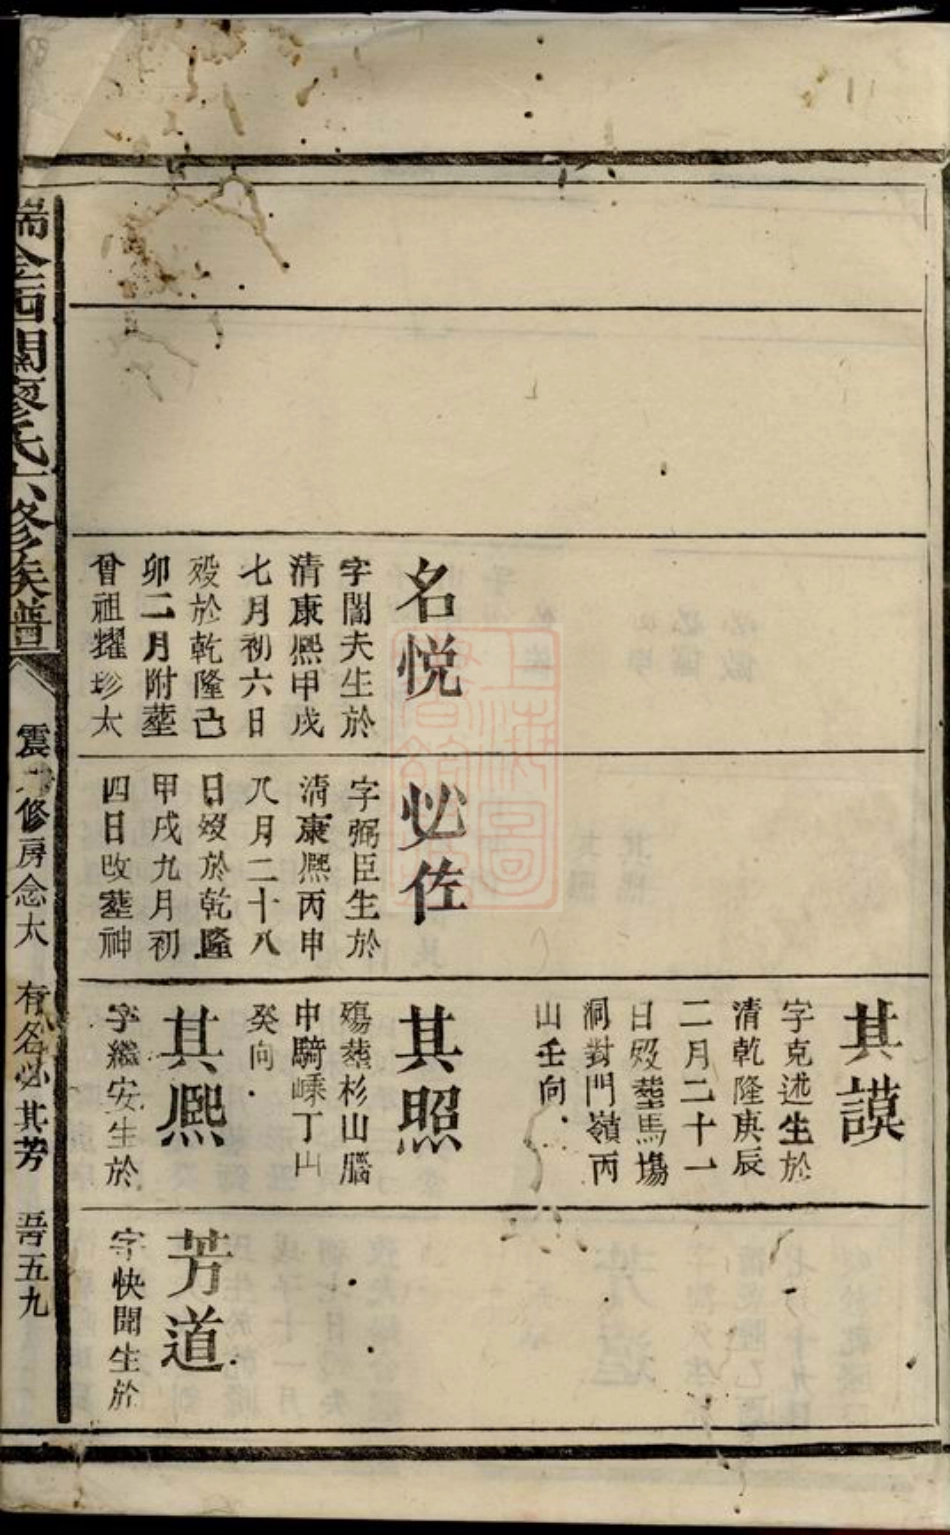 名悅
字闇夫生於
清康熈甲戌
七月初六日
殁於乾隆己
卯二月附塟
曾祖耀珍太
必佐
字弼臣生於
清康熈丙申
八月二十八
日歿於乾隆
甲戌九月初
四日改塟神
其謨
字克述生於
清乾隆庚辰
二月二十一
日殁塟馬塲
洞對門嶺丙
山壬向
其照
殤塟杉山腦
申騎嵊丁山
癸向
其熈
字繼安生於
芳道
字快聞生於
瑞金西關廖氏六修族譜
震 修房念太
有名必其芳
五九